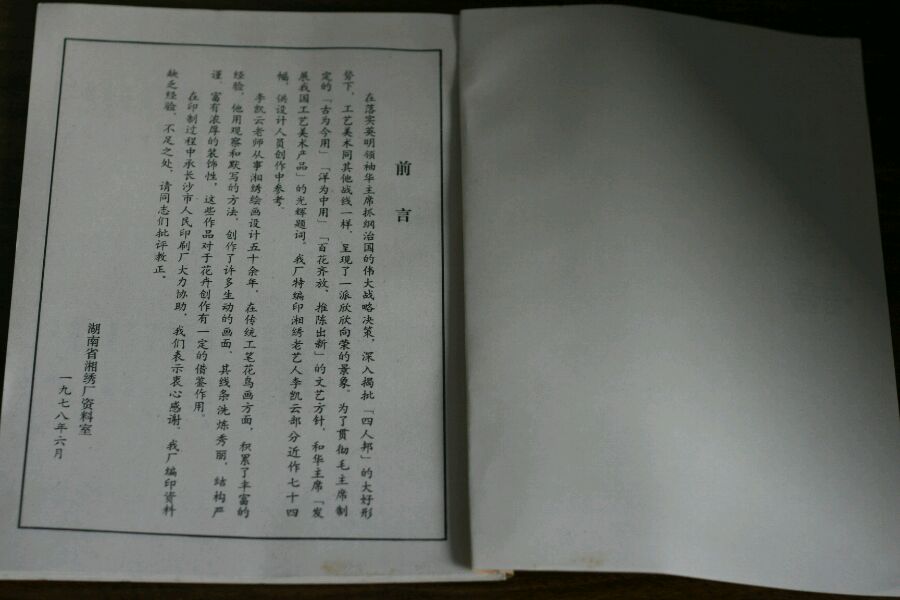 前言
在落实英明领袖华主席抓纲治国的伟大战略决策，深入揭批「四人邦」的大好形
势下，工艺美术同其他战线一样，呈现了一派欣欣向荣的景象。为了贯彻毛主席制
定的「古为今用」「洋为中用」「百花齐放、推陈出新」的文艺方针，和华主席「发
展我国工艺美术产品」的光辉题词。我厂特编印湘绣老艺人李凯云部分近作七十四
幅，供设计人员创作中参考。
李凯云老师从事湘绣绘画设计五十余年，在传统工笔花鸟画方面，积累了丰富的
经验，他用观察和默写的方法，创作了许多生动的画面，其线条洗炼秀丽，结构严
谨，富有浓厚的装饰性，这些作品对于花卉创作有一定的借鉴作用。
在印制过程中承长沙市人民印刷厂大力协助，我们表示衷心感谢。我厂编印资料
缺乏经验，不足之处，请同志们批评教正。
湖南省湘绣厂资料室
一九七八年六月